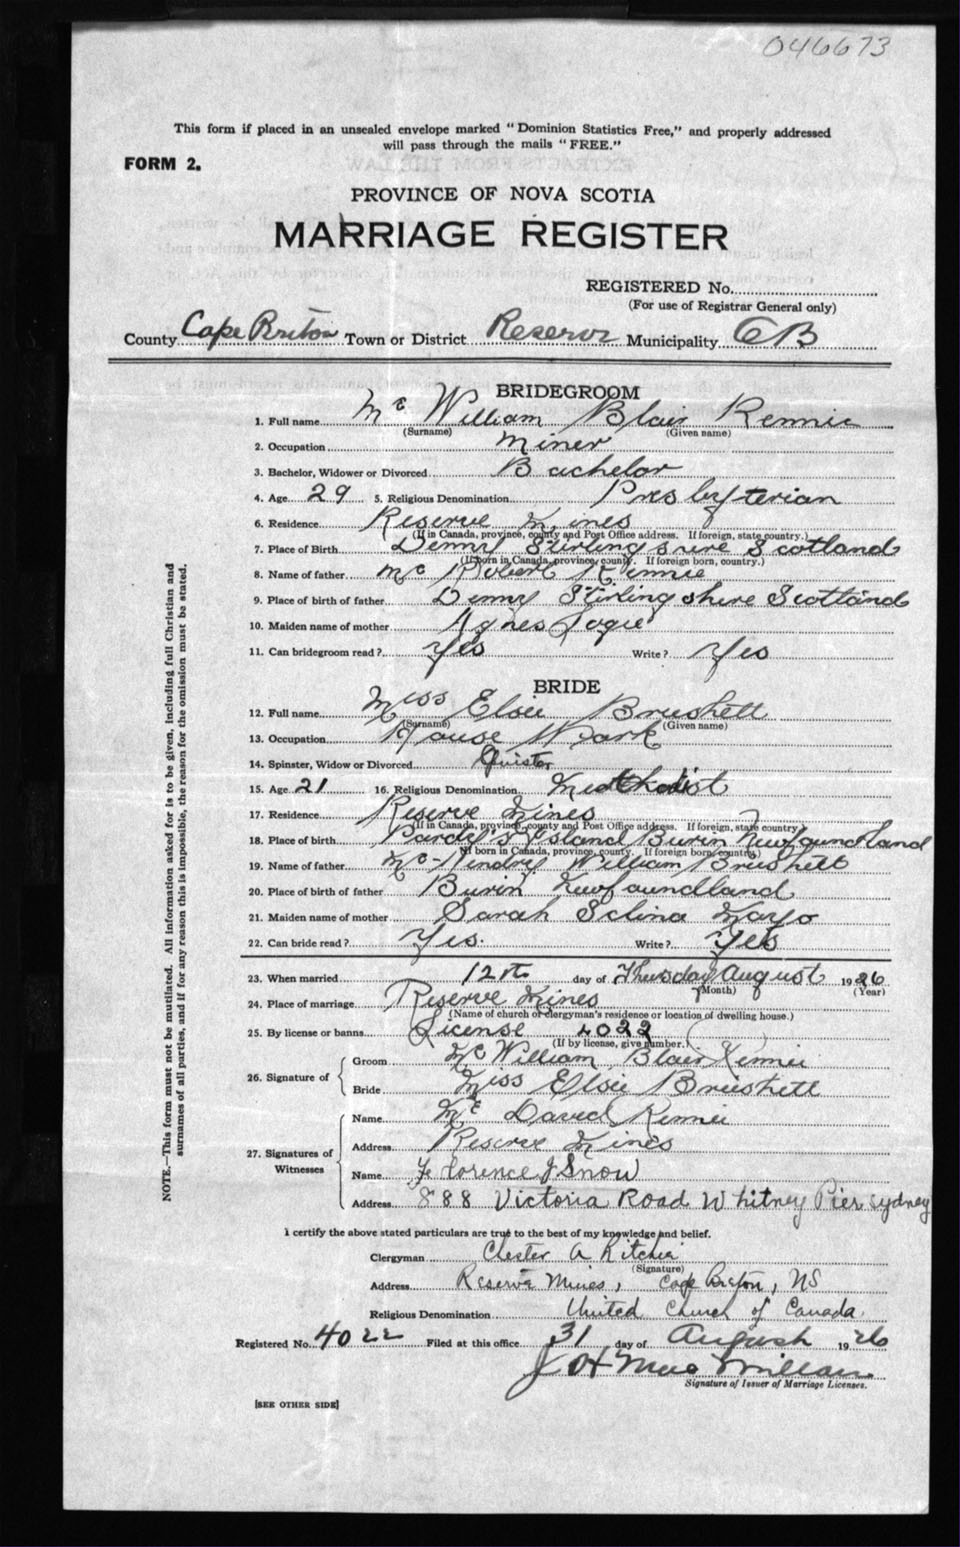 046673
This form if placed in an unsealed envelope marked "Dominion Statistics Free," and properly addressed
will pass through the mails "FREE."
FORM 2.
PROVINCE OF NOVA SCOTIA
MARRIAGE REGISTER
REGISTERED No.
(For use of Registrar General only)
County Cape Briton Town or District Reserve Municipality CB
BRIDEGROOM
1. Full name Mc William Blair Rennie
(Surname) (Given name)
2. Occupation Miner
3. Bachelor, Widower or Divorced Bachelor
4. Age 29 5. Religious Denomination Presbyterian
6. Residence Reserve Mines
(If in Canada, province, county and Post Office address. If foreign, state country.)
7. Place of Birth Denny Stirling shire Scotland
(If born in Canada, province, county. If foreign born, country.)
8. Name of father Mc Robert Rennie
9. Place of birth of father Denny Stirling shire Scotland
10. Maiden name of mother Agnes Logie
11. Can bridegroom read? Yes Write? Yes
BRIDE
12. Full name Miss Elsie Brushett
(Surname) (Given name)
13. Occupation House Work
14. Spinster, Widow or Divorced
15. Age 21 16. Religious Denomination Methodist
17. Residence Reserve Mines
(If in Canada, province, county and Post Office address. If foreign, state country)
18. Place of birth Pardy's Island Burin Newfoundland
(If born in Canada, province, county. If foreign born, country)
19. Name of father Mc Hendry William Brushett
20. Place of birth of father Burin Newfoundland
21. Maiden name of mother Sarah Selina Mayo
22. Can bride read? Yes. Write? Yes
23. When married 12th day of Thursday August 1926
(Month) (Year)
24. Place of marriage Reserve Mines
(Name of church or clergyman's residence or location of dwelling house.)
25. By license or banns License 4022
(If by license, give number.)
26. Signature of Groom Mc William Blair Rennie
Bride Miss Elsie Brushett
27. Signatures of Witnesses Name Mc David Rennie
Address Reserve Mines
Name Florence J Snow
Address 888 Victoria Road Whitney Pier Sydney
I certify the above stated particulars are true to the best of my knowledge and belief.
Clergyman Chester A Ritchie
(Signature)
Address Reserve Mines, Cape Breton, NS
Religious Denomination United Church of Canada.
Registered No. 4022 Filed at this office 31 day of August 1926
J H MacMillan
Signature of Issuer of Marriage Licenses.
[SEE OTHER SIDE]
NOTE.—This form must not be mutilated. All information asked for is to be given, including full Christian and
surnames of all parties, and if for any reason this is impossible, the reason for the omission must be stated.